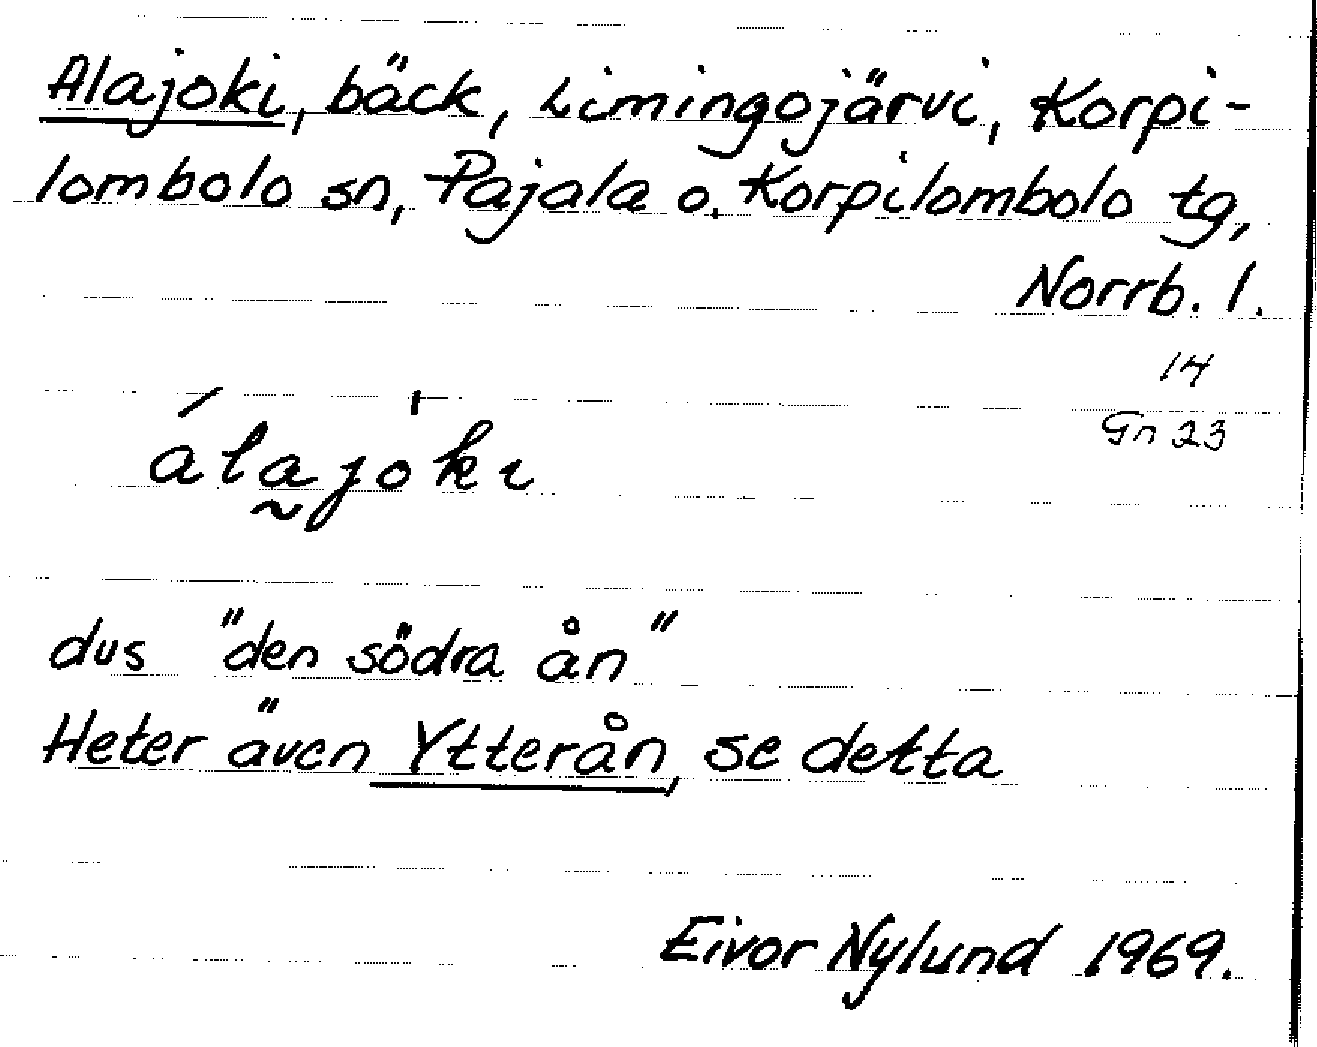 Alajoki, bäck, Limingojärvi, Korpi-
lombolo sn, Pajala o. Korpilombolo tg,
Norrb. l.
14
Gn 23
ála̰jòkɩ
dvs "den södra ån"
Heter även Ytterån, se detta
Eivor Nylund 1969.